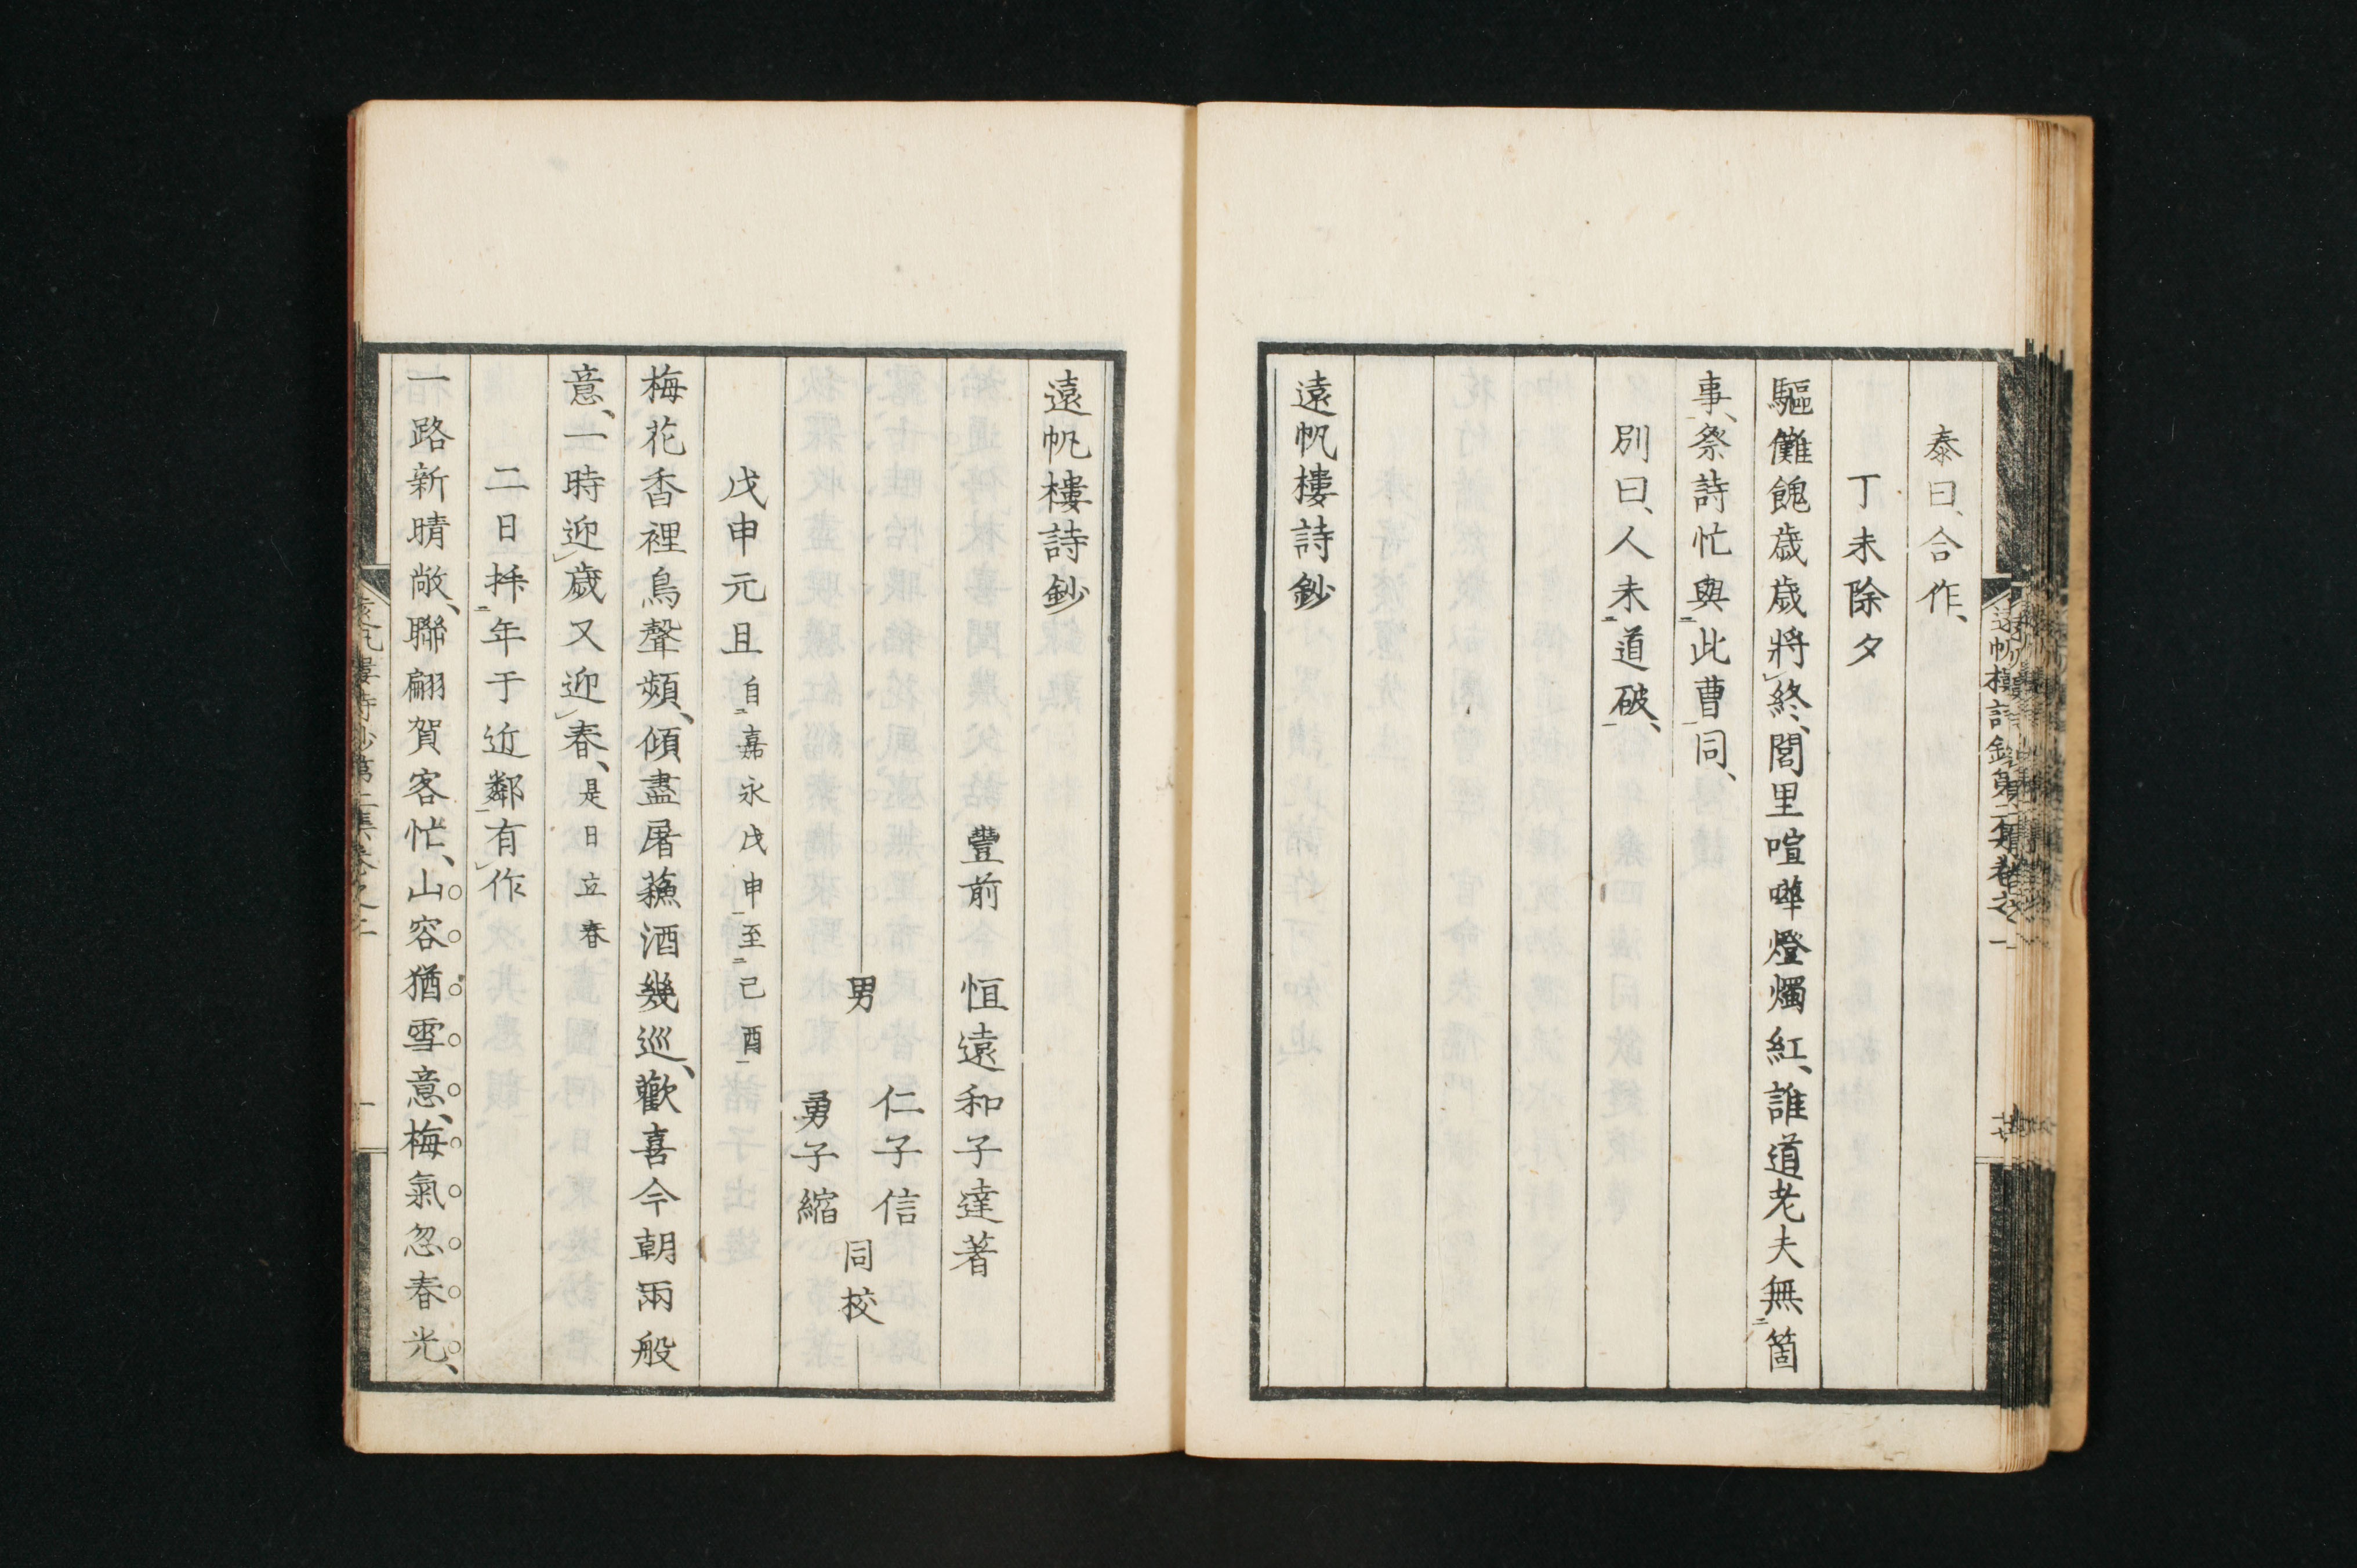 泰曰、合作、
丁未除夕
驅儺餽歳歳將終、閭里喧嘩燈燭紅、誰道老夫無箇
事、祭詩忙與此曹同、
別曰、人未道破、
遠帆樓詩鈔
遠帆樓詩鈔
豐前 恒遠和子達著
男
仁子信
勇子縮
同校
戊申元旦 自嘉永戊申至己酉
梅花香裡鳥聲頻、傾盡屠蘓酒幾巡、歡喜今朝兩般
意、一時迎歳又迎春、是日立春
二日拝年于近鄰有作
一路新晴敞、聯翩賀客忙、山容猶雪意、梅氣忽春光、